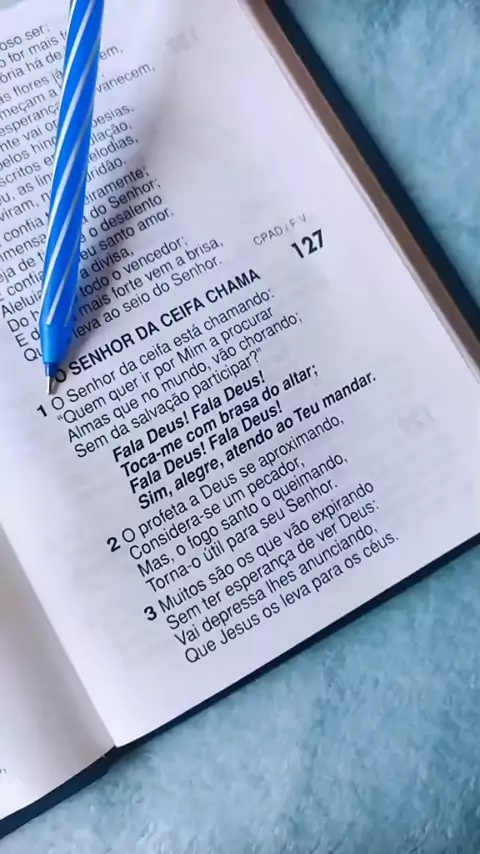 oso ser;
o for mais f
ória há de
as flores já em,
meçam a
esperança vanecem,
nte vai o
pelos hin esias,
scritos e lação,
u, as lin elodias,
viram, n ridão.
confia eiramente;
imensa do Senhor;
eja de t e o desalento
E confia eu santo amor.
Aleluia a divisa,
Do h todo o vencedor;
E o mais forte vem a brisa,
Qu leva ao seio do Senhor.
CPAD / F.V.
127
O SENHOR DA CEIFA CHAMA
1 O Senhor da ceifa está chamando:
"Quem quer ir por Mim a procurar
Almas que no mundo, vão chorando;
Sem da salvação participar?"
Fala Deus! Fala Deus!
Toca-me com brasa do altar;
Fala Deus! Fala Deus!
Sim, alegre, atendo ao Teu mandar.
2 O profeta a Deus se aproximando,
Considera-se um pecador,
Mas, o fogo santo o queimando,
Torna-o útil para seu Senhor.
3 Muitos são os que vão expirando
Sem ter esperança de ver Deus:
Vai depressa lhes anunciando,
Que Jesus os leva para os céus.